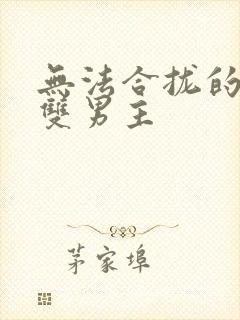 無法合拢的
雙男主
茅家埠